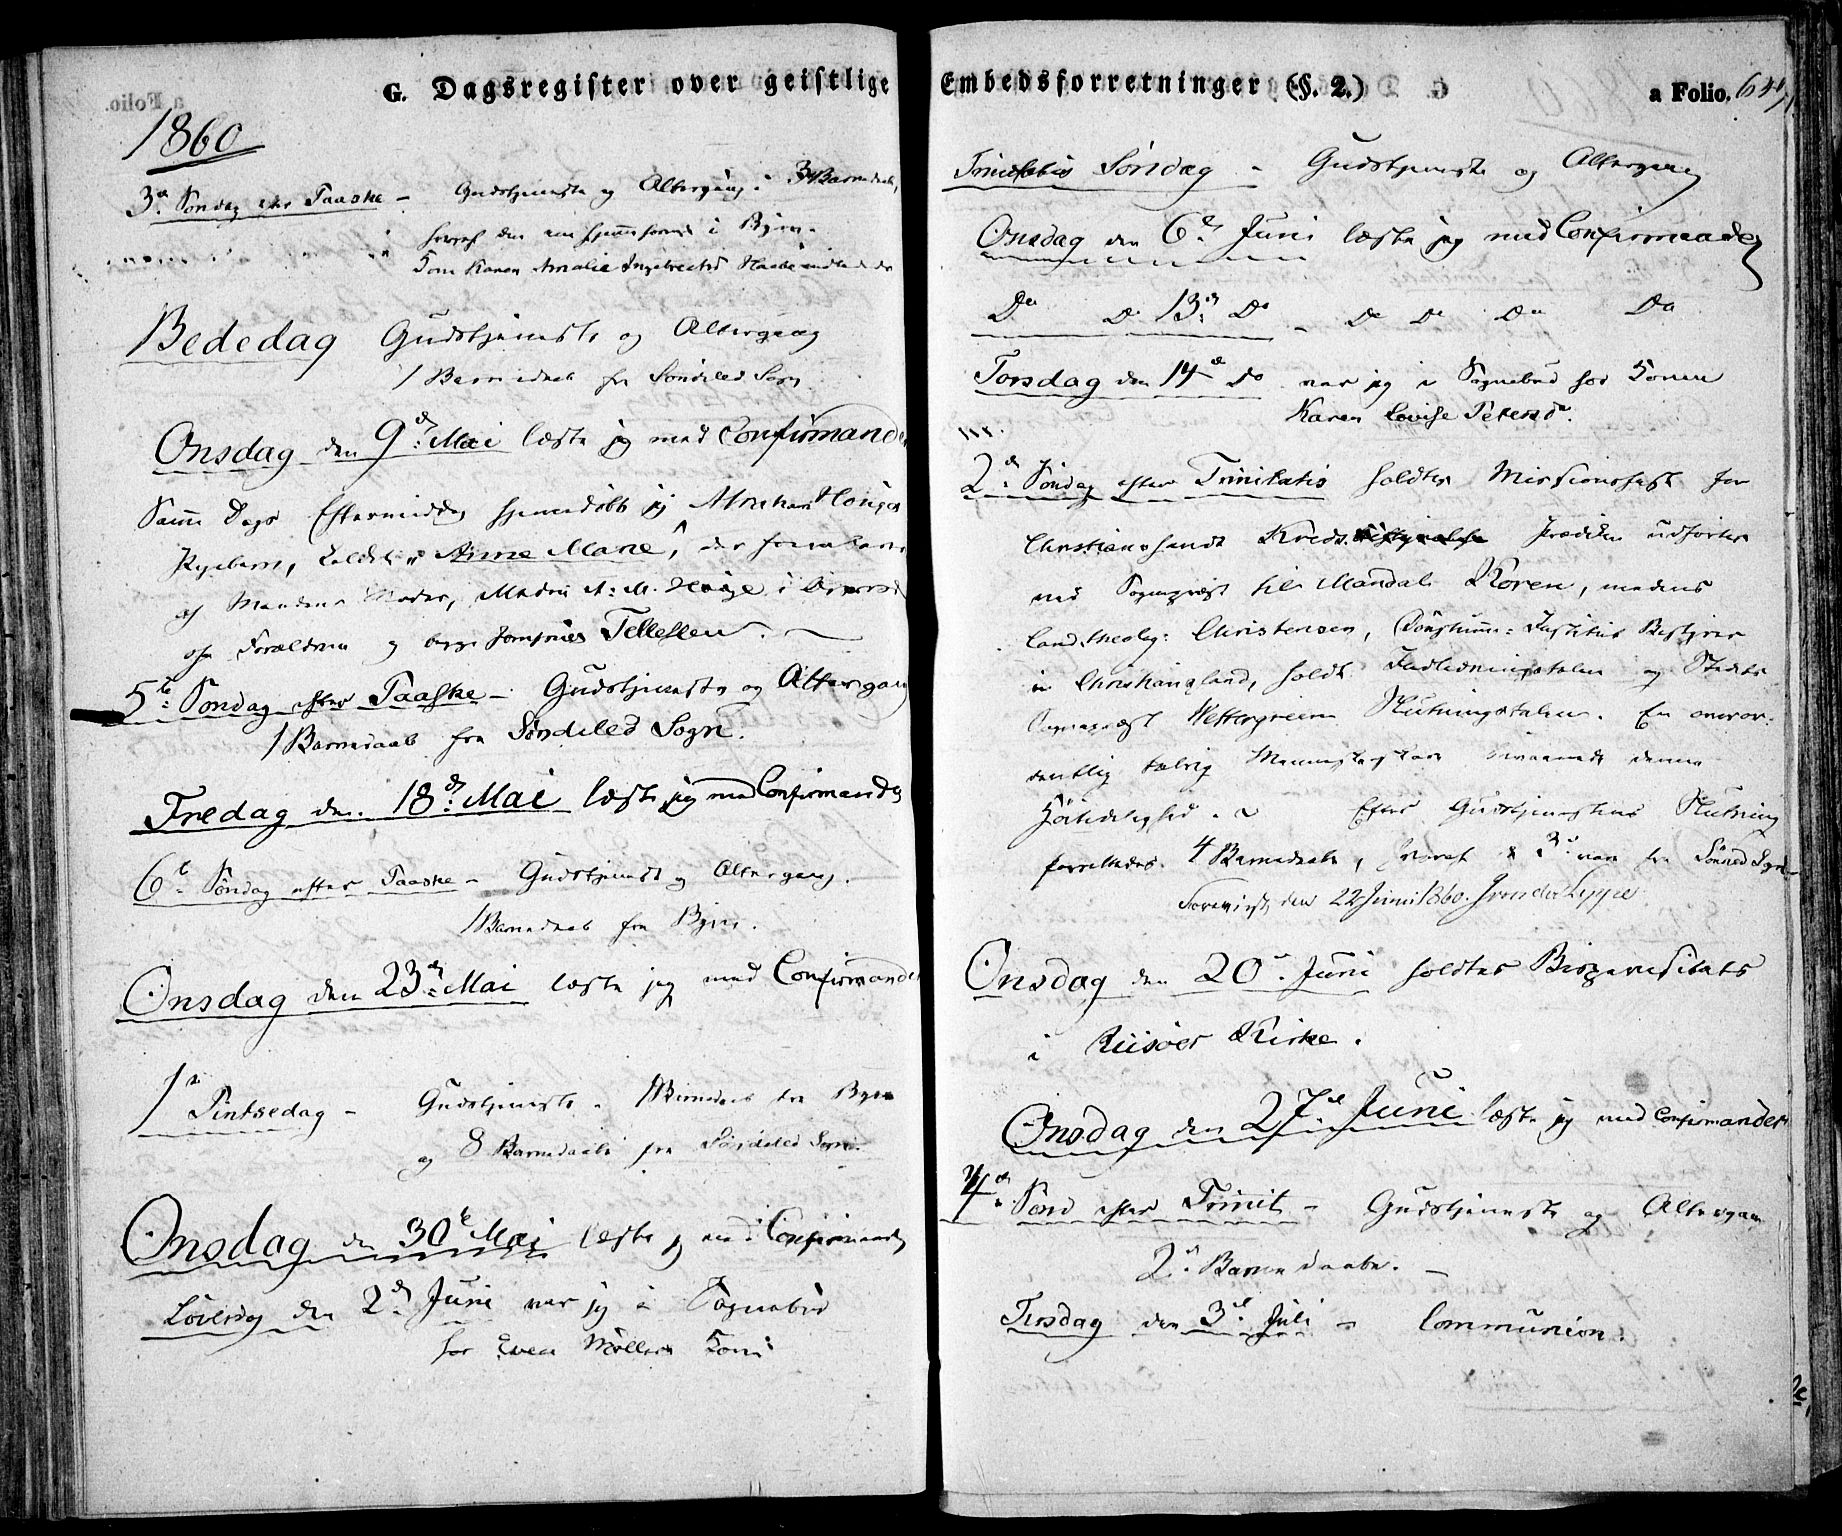 G. Dagsregister over geistlige
1860
3die Søndag efter Paaske – Gudstjeneste og Altergang. 3 Barnedaab,
hvoraf den ene hjemmefoen i Byen.
Karen Amalie Ingebretsd
Bededag Gudstjeneste og Altergang
1 Barnedaab fra Söndeled Sogn
Onsdag den 9de Mai læste jeg med Confirmander
Samme Dags Eftermiddag hjemmedöbte jeg Abraham Höiges
Pigebarn, kaldet Anne Marie, der frembares
af Mandens Moder, Madm A. M. Höige i
af Forældrene og begge Jomfruer Tellefsen.
5te Söndag efter Paaske – Gudstjeneste og Altergang
1 Barnedaab fra Söndeled Sogn.
Fredag den 18de Mai læste jeg med Confirmander
6te Söndag efter Paaske – Gudstjeneste og Altergang.
1 Barnedaab fra Byen.
Onsdag den 23de Mai læste jeg med Confirmander
1ste Pintsedag – Gudstjeneste – 1 Barnedaab fra Byen
og 8 Barnedaab fra Söndeled Sogn
Onsdag den 30te Mai læste jeg med Confirmander
Löverdag den 2den Juni var jeg i Sognebud
for Even Möllers Kone
Embedsforretninger (§. 2.) a Folio. 641
Trinitatis Söndag – Gudstjeneste og Altergang
Onsdag den 6te Juni læste jeg med Confirmander
Do Do 13de Do – Do Do Do Do
Torsdag den 14de Do var jeg i Sognebud hos Konen
Karen Lovise Petersd.
2den Söndag efter Trinitatis holdtes Missionsfest for
Christianssands Kreds. Prædiken udförtes
ved Sogneprest til Mandal Koren, medens
Cand. theolog: Christensen, Bestyrer
i Christianssand, holdt Indledningstalen og Stedets
Sogneprest Wettergreen Slutningstalen. En overor-
dentlig talrig Menneskeskare bivaanede denne
Höitidelighed. – Efter Gudstjenestens Slutning
forrettedes 4 Barnedaab, hvoraf 3de var fra Sönned Sogn –
Forevist den 22 Juni 1860. J von der Lippe
Onsdag den 20de Juni holdtes Bispevisitats
i Riisöer Kirke.
Onsdag den 27de Juni læste jeg med Confirmander
4de Sönd efter Trinit – Gudstjeneste og Altergang
2de Barnedaabe. –
Tirsdag den 3die Juli – Communion.